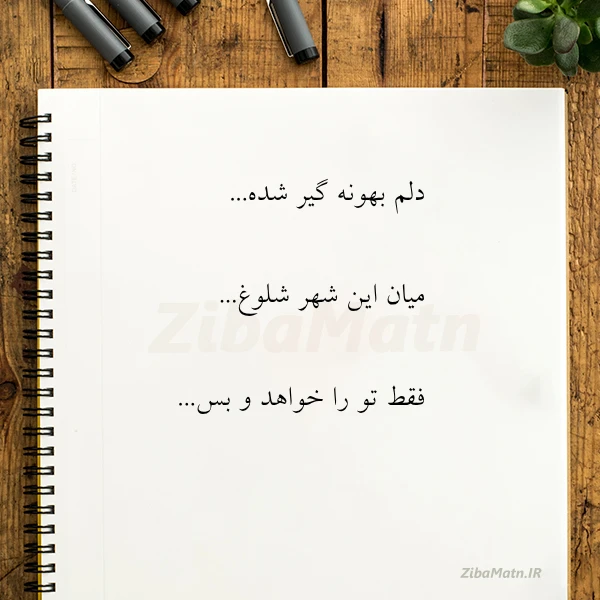 دلم بهونه گیر شده...
میان این شهر شلوغ...
فقط تو را خواهد و بس...
ZibaMatn
ZibaMatn.IR